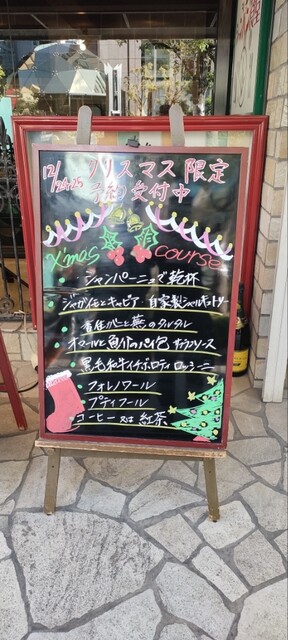 12/24.25 クリスマス限定
予約受付中
Xmas course
シャンパーニュで乾杯
ジャガイモとキャビア 自家製シャルキュトリー
と蕪のタルタル
オマールと魚介のパイ包
黒毛和牛イチボ ロティ ロッシーニ
フォレノワール
プティフール
コーヒー又は紅茶